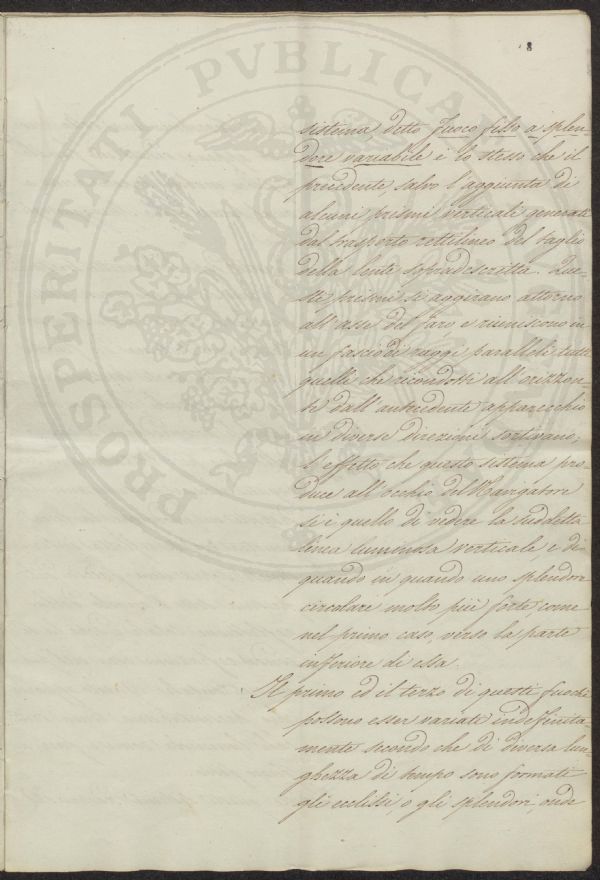 8
sistema, detto fuoco fisso a splen-
dore variabile è lo stesso che il
precedente salvo l'aggiunta di
alcuni prismi verticali generati
dal trasporto rettilineo del taglio
della lente sopradescritta. Que-
sti prismi si aggirano attorno
all'asse del faro e riuniscono in
un fascio di raggi paralleli tutti
quelli che ricondotti all'orizzon-
te dall'antecedente apparecchio
in diverse direzioni sortivano;
l'effetto che questo sistema pro-
duce all'occhio del Navigatore
si è quello di vedere la suddetta
linea luminosa verticale e di
quando in quando uno splendore
circolare molto più forte, come
nel primo caso, verso la parte
inferiore di essa.
Il primo ed il terzo di questi fuochi
possono esser variati indefinita-
mente secondo che di diversa lun-
ghezza di tempo sono formati
gli ecclissi, o gli splendori, onde
PROSPERITATI PVBLICAE